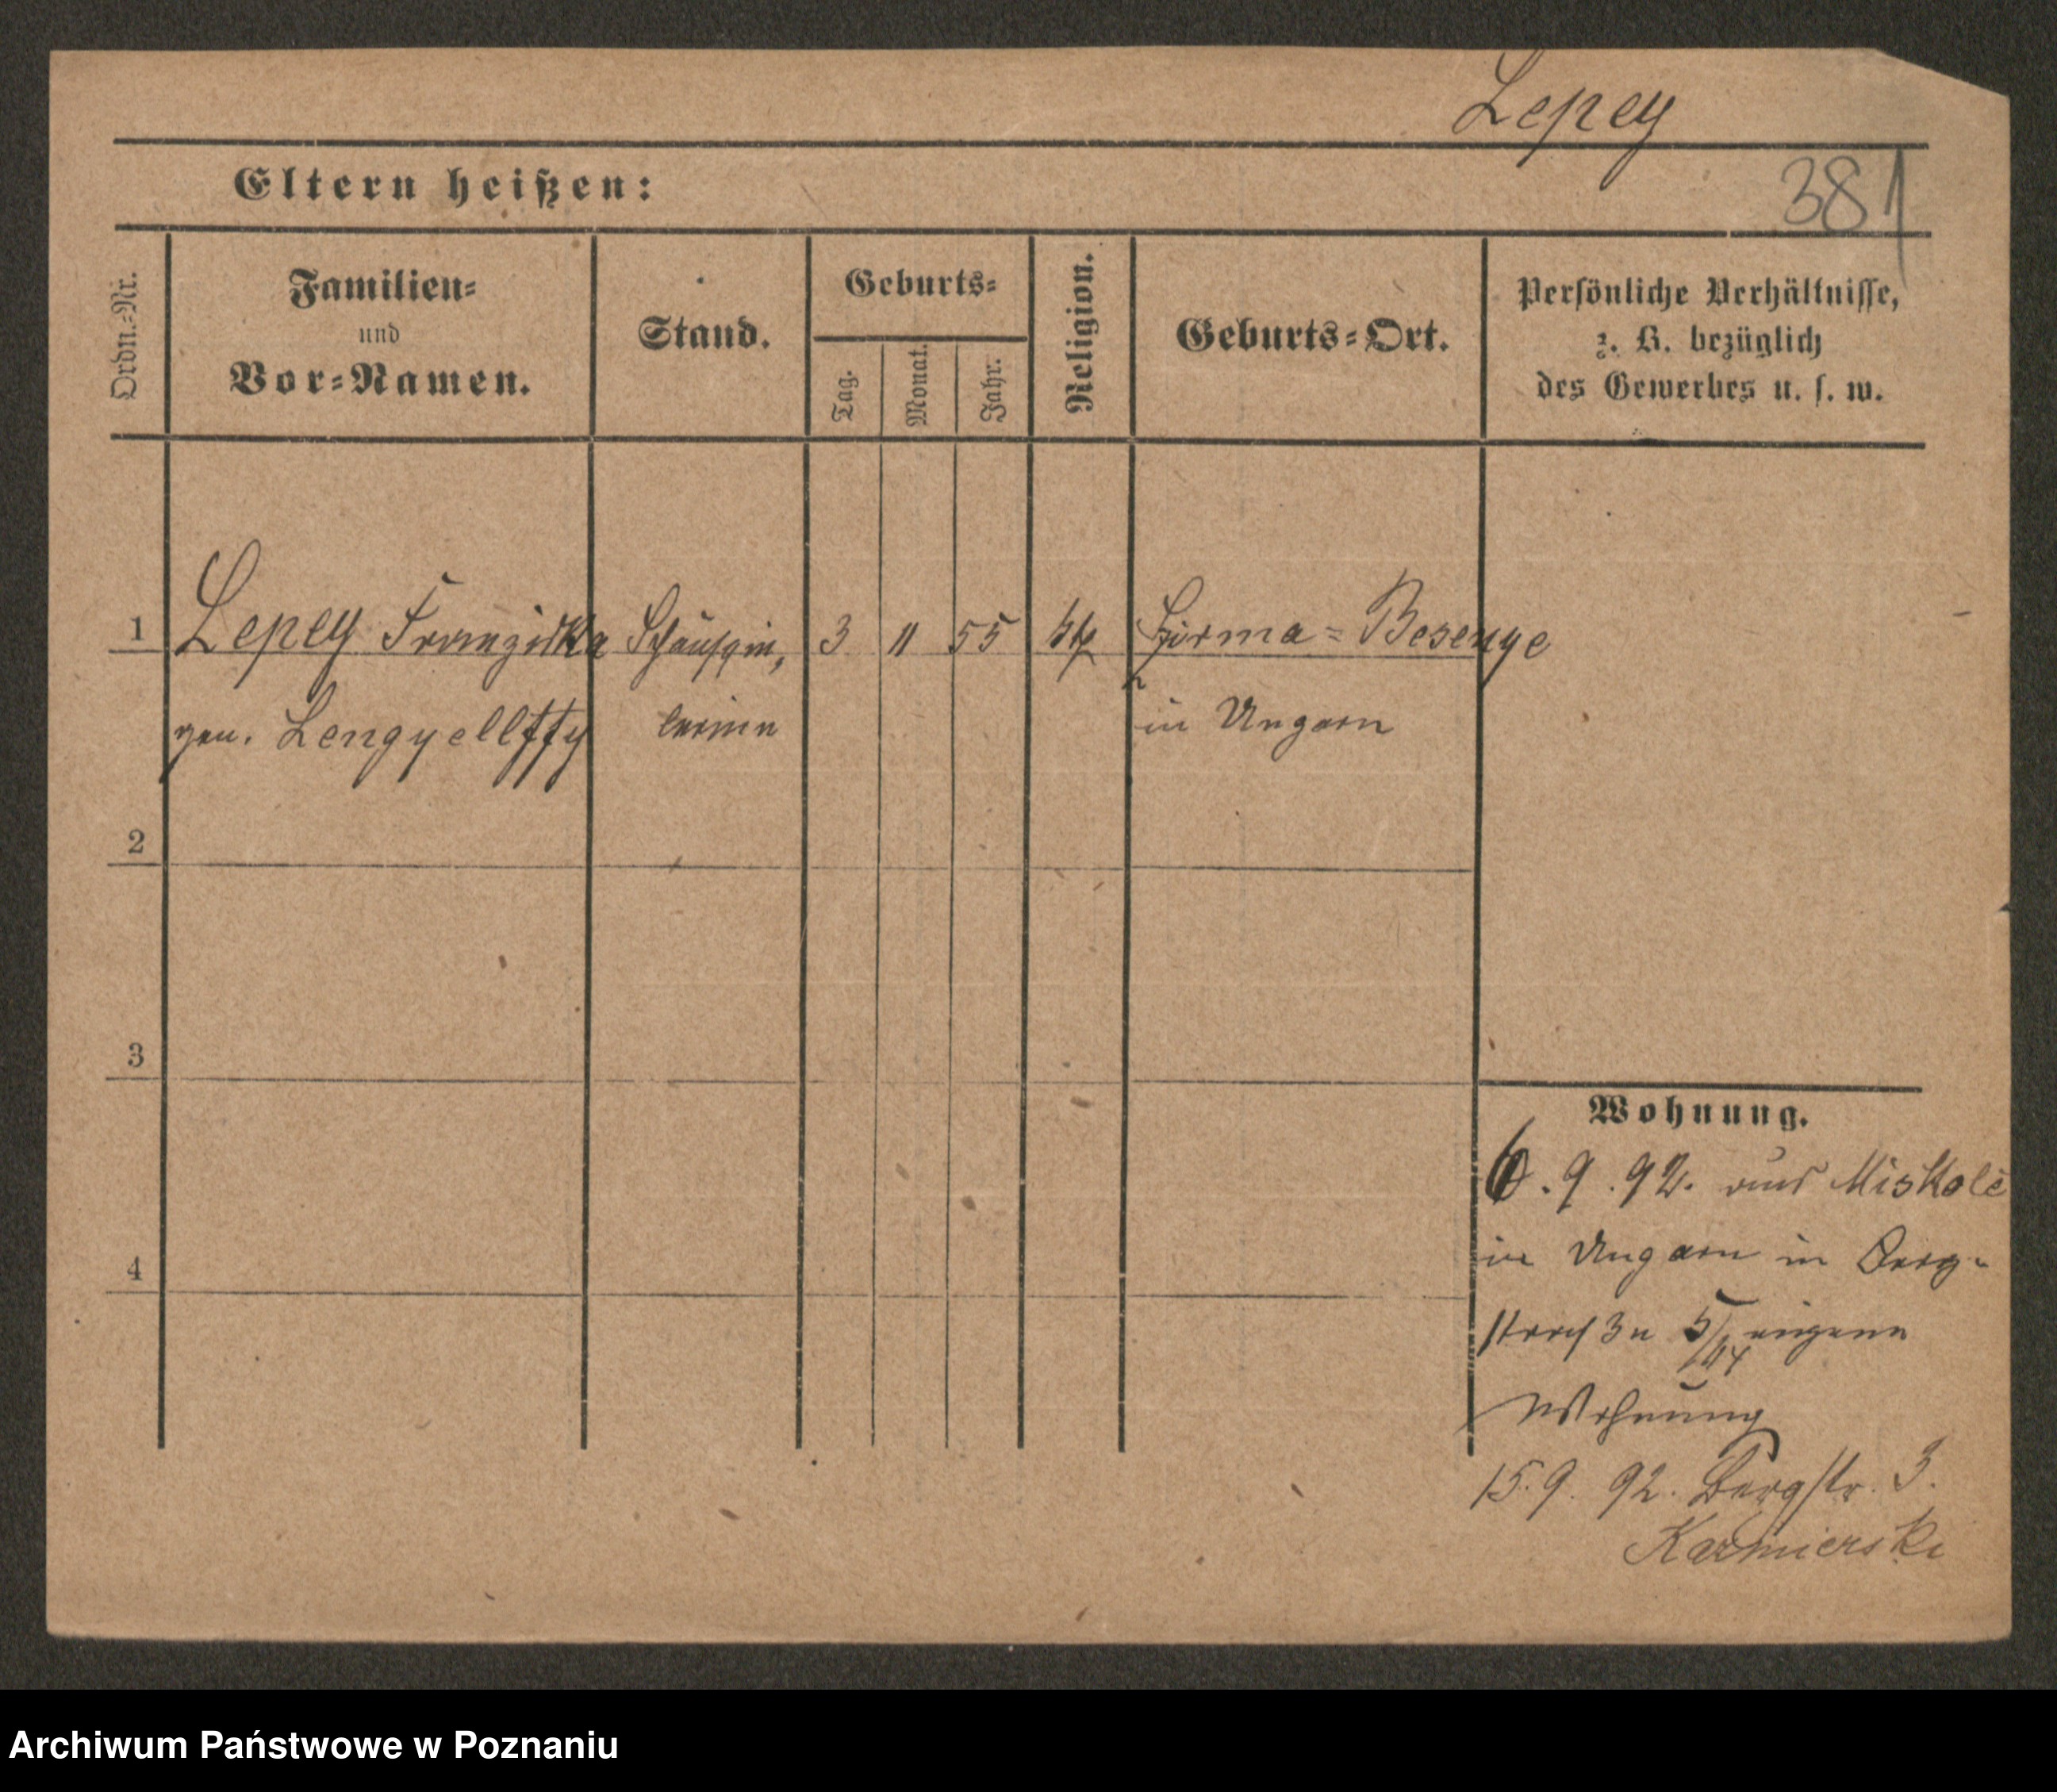 Lepey
381
Eltern heißen:
Ordn.-Nr.
Familien-
und
Vor-Namen.
Stand.
Geburts-
Tag.
Monat.
Jahr.
Religion.
Geburts-Ort.
Persönliche Verhältnisse,
z. B. bezüglich
des Gewerbes u. s. w.
1 Lepey Franziska Schauspie, 3 11 55 kth = Besenye
gen. Lengyellffy lerinn in Ungarn
2
3
4
Wohnung.
6. 9. 92. aus Miskolc
in Ungarn in Berg-
straße 5/ eigene
Wohnung
15. 9. 92. Bergstr. 3.
Kazmierski
Archiwum Państwowe w Poznaniu